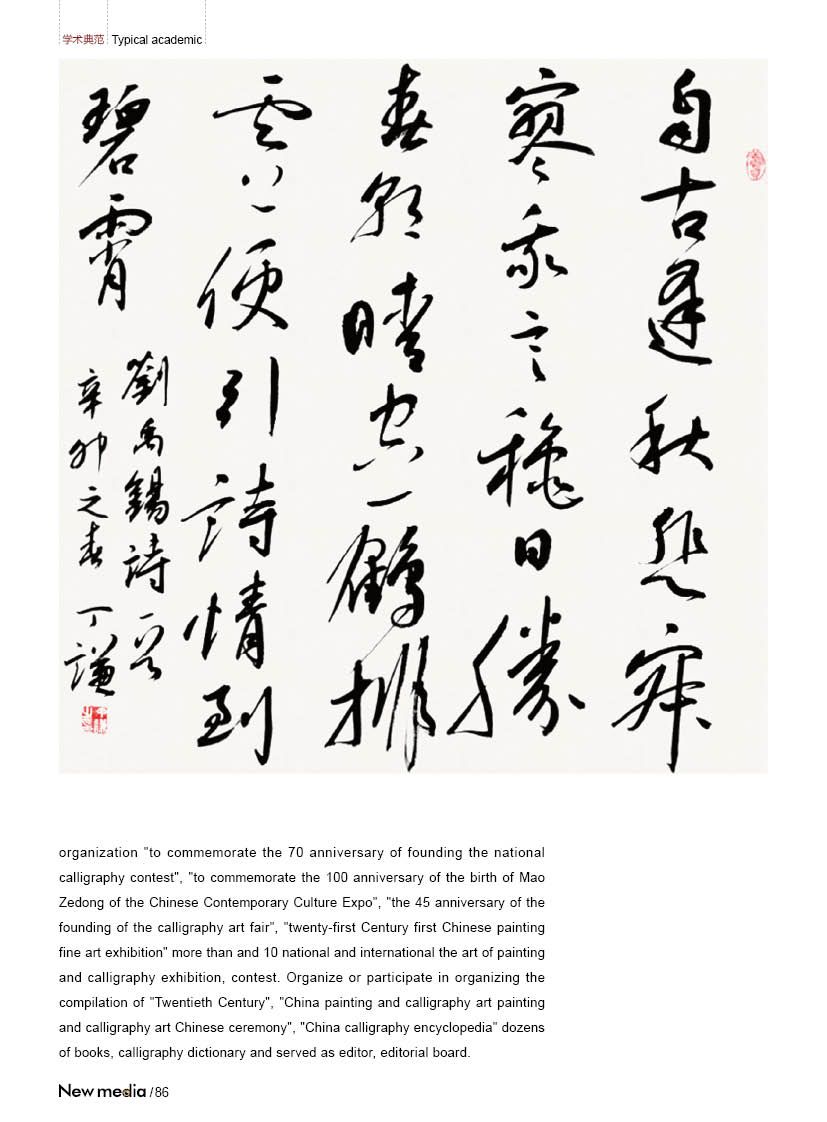 学术典范 Typical academic
自古逢秋悲寂
寥我言穐日勝
春朝晴空一鶴排
云上便引詩情到
碧霄
劉禹錫詩一首
辛卯之春 丁謙
organization "to commemorate the 70 anniversary of founding the national
calligraphy contest", "to commemorate the 100 anniversary of the birth of Mao
Zedong of the Chinese Contemporary Culture Expo", "the 45 anniversary of the
founding of the calligraphy art fair", "twenty-first Century first Chinese painting
fine art exhibition" more than and 10 national and international the art of painting
and calligraphy exhibition, contest. Organize or participate in organizing the
compilation of "Twentieth Century", "China painting and calligraphy art painting
and calligraphy art Chinese ceremony", "China calligraphy encyclopedia" dozens
of books, calligraphy dictionary and served as editor, editorial board.
New media /86